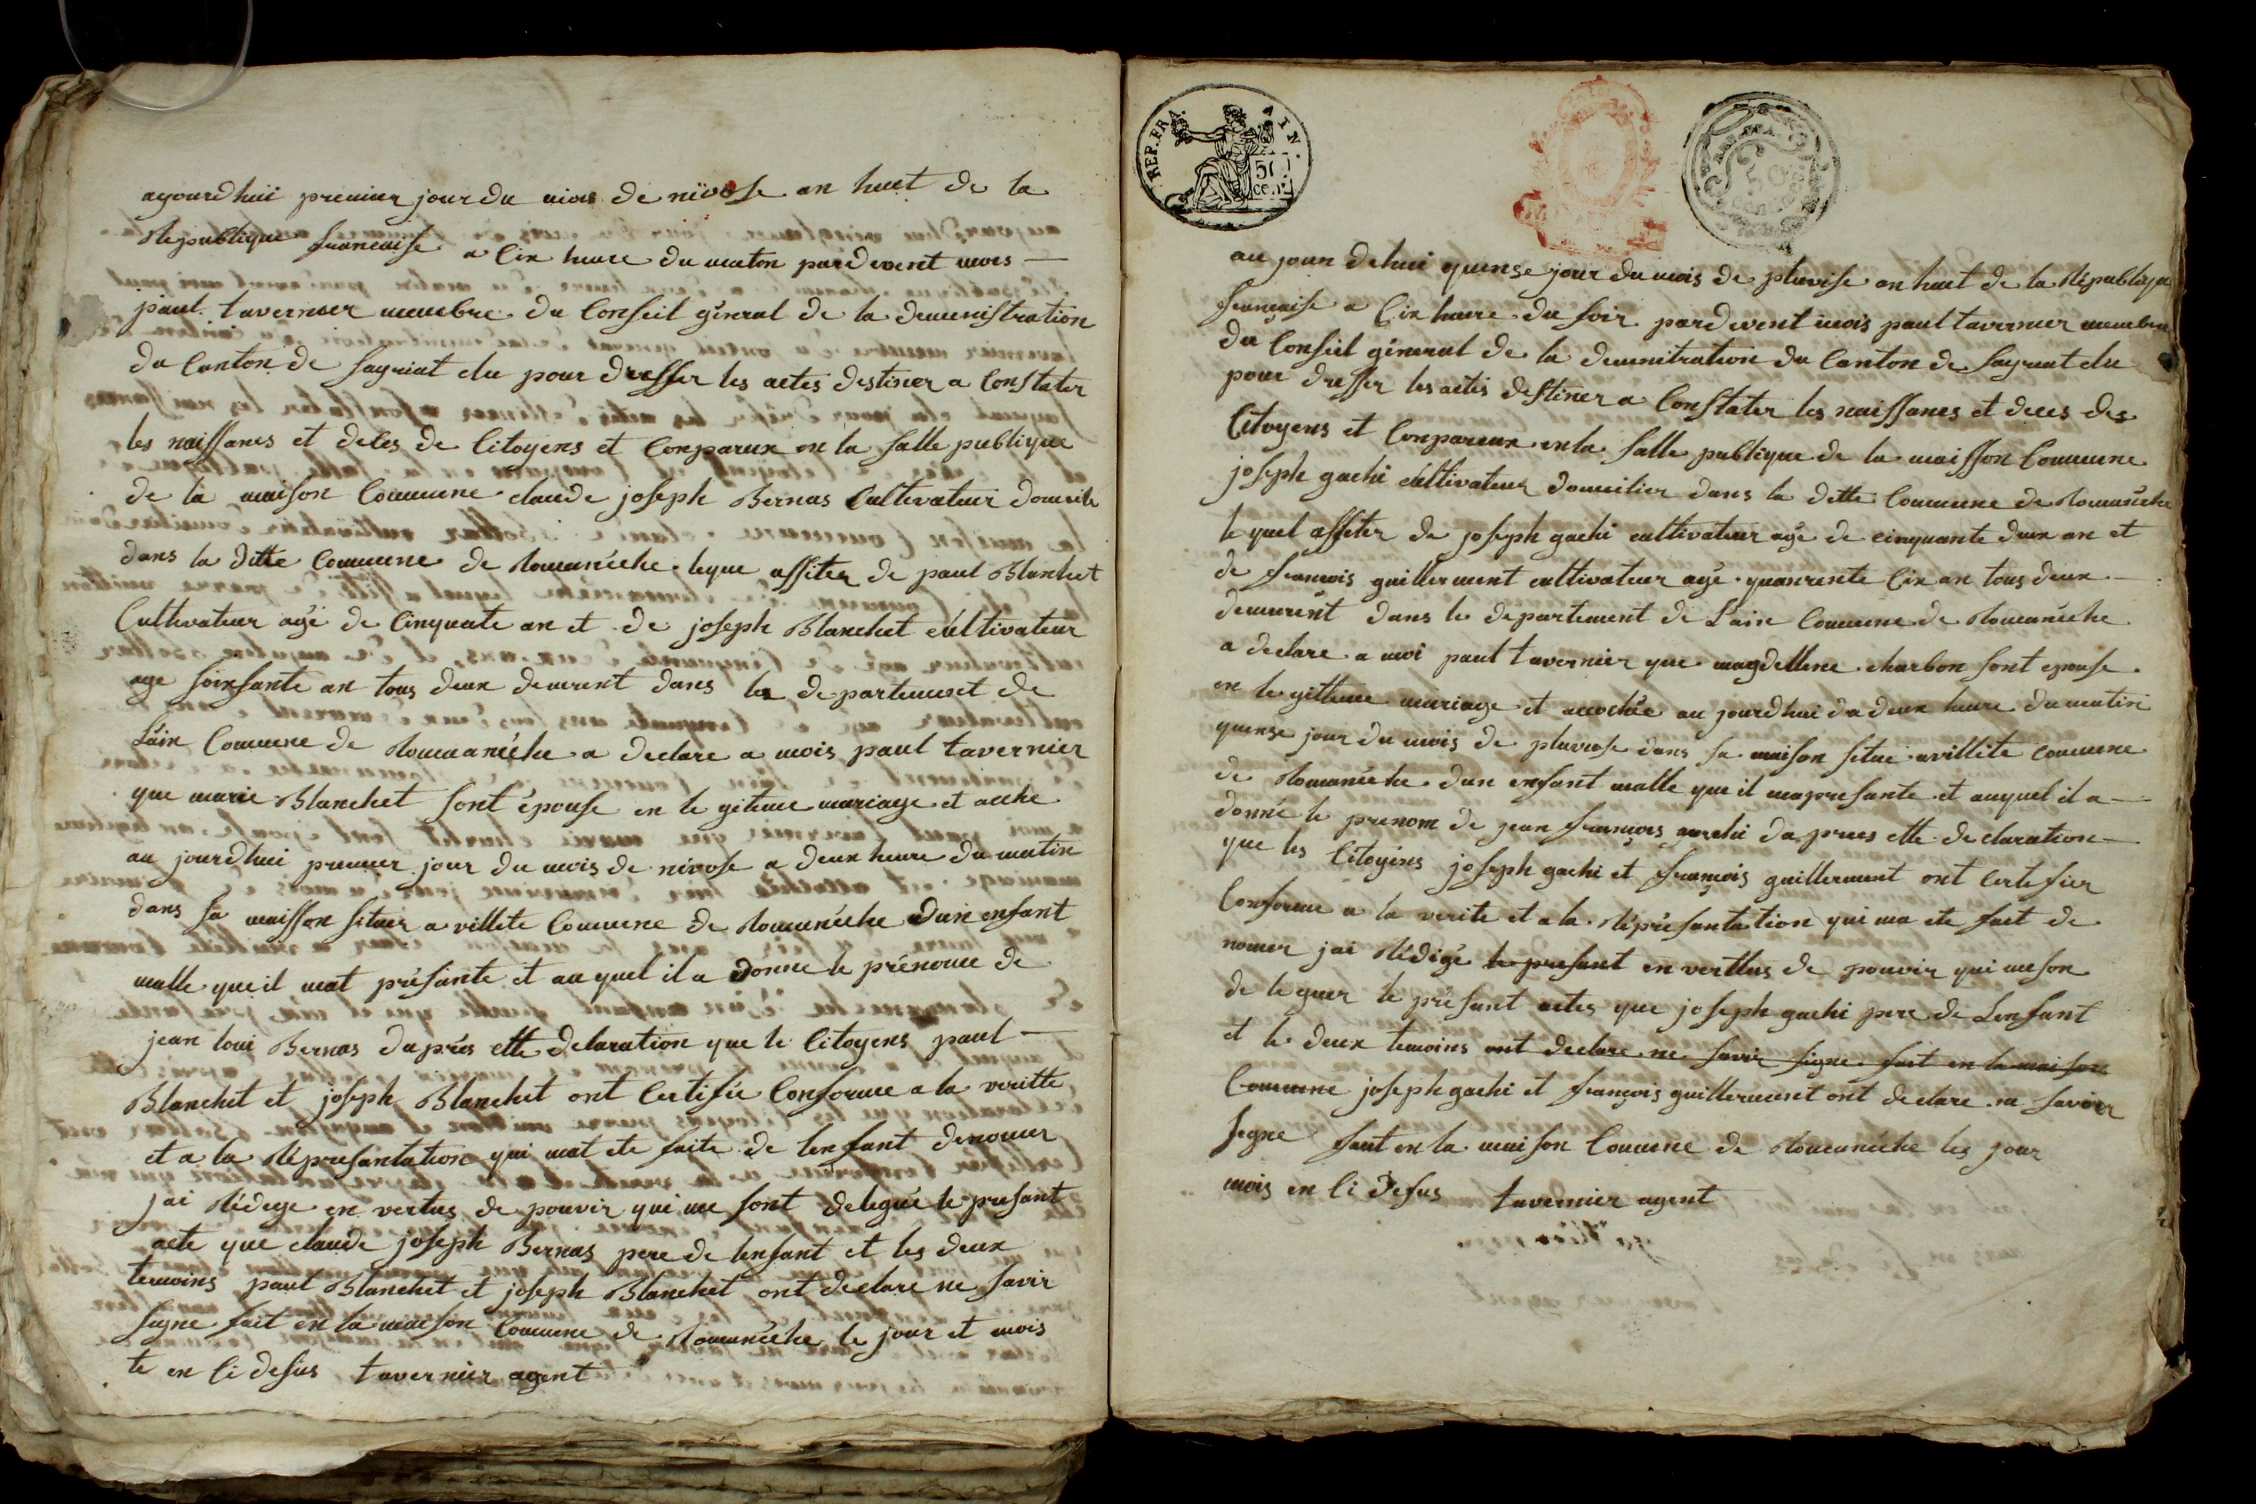 ajourdhui premier jour du mois de nivose an huit de la
Republique francaise a Cix heure du maton pardevent mois
paul tavernier membre du Conseil géneral de la demenistration
du Canton de sayriat elu pour dresser les actes destiner a Constater
les naissances et deces de Citoyens et Conparux en la salle publique
de la maison Commune claude joseph Bernas Cultivateur domicile
dans la ditte Commune de Romanéche leque assiter de paul Blanchet
Cultivateur agé de Cinquate an et de joseph Blanchet cultivateur
age soixsante an tous deux demeurent dans le departement de
Lain Commune de Romanéche a declare a mois paul tavernier
que marie Blanchet sont épouse en le gitime mariage et accke
au jourdhui premier jour du mois de nivose a deux heure du matin
dans sa maisson situer a villete Commune de Romanéche dun enfant
malle que il mat présante et auquel il a donne le prénome de
jean loui Bernas daprés ette delaration que le Citoyens paul
Blanchet et joseph Blanchet ont Certifiée Conforme a la veritte
et a la Représantation qui mat ete faite de lenfant denomer
jai Rédege en vertus de pouvoir qui me sont delegué le presant
acte que claude joseph Bernas pere de lenfant et les deux
temoins paul Blanchet et joseph Blanchet ont declare ne savir
signe fait en la maison Commune de Romanéche le jour et mois
te en Ci desus tavernier agent
REP. FRA. AIN.
50 cent
50
au joun dehui quense jour du mois de pluvise an huit de la Republique
française a Cix heure du soir pardevent mois paul tavernier membre
du Conseil géneral de la demenitration du Canton de sayriat elu
pour dresser les actes destiner a Constater les naissances et deces des
Citoyens et Conparux en la salle publique de la maisson Commune
joseph gachi cultivateur domicilier dans la ditte Commune de Romanéche
lequel assiter de joseph gachi cultivateur agé de cinquante deux an et
de francois guillermint cultivateur agé quanrente Cix an tous deux
demeurent dans le departement de Lain Commune de Romanéche
a declare a moi paul tavernier que magdellene charbon sont epouse
en le gitteme mariage et accochée au jourdhui da deux heure du matin
quense jour du mois de pluviose dans sa maison situe avillete commune
de Romanéche dun enfant malle que il mapresante et auquel il a
donné le prenom de jean françois gachi da prees ette declaration
que les Citoyéns joseph gachi et françois guillermint ont Certefier
Conforme a la verite et a la Réprésantation qui ma ete fait de
nomer jai Rédigé le presant en verttus de pouvoir qui meson
de leguer le présant actes que joseph gachi pere de Lenfant
et le deux temoins ont declare ne savir signe fait en la maison
Commune joseph gachi et françois guillermint ont declare ne savoir
segne fant en la maison Commune de Romanéche les jour
mois en Ci desus tavernier agent